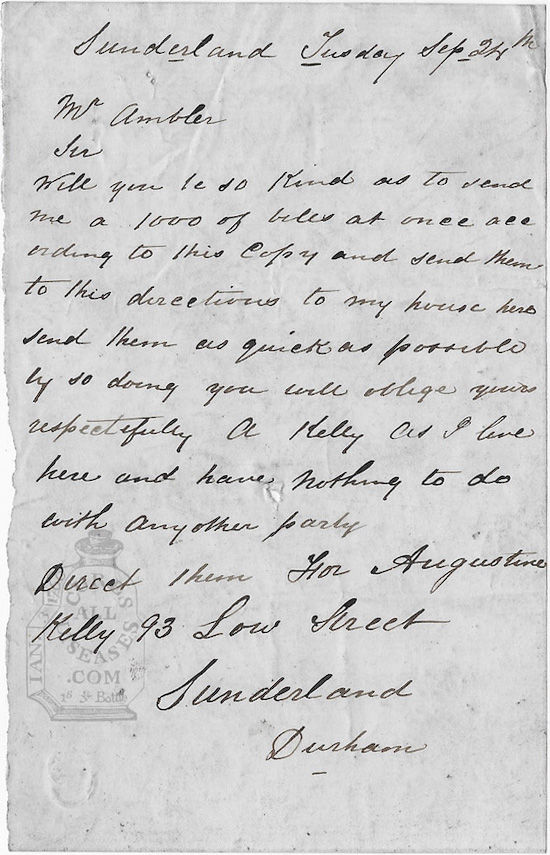 Sunderland Tusday Sep 24th
Mr Ambler
Sir
Will you be so Kind as to send
me a 1000 of biles at once acc
ording to this Copy and send them
to this directions to my house here
send them as quick as possible
by so doing you will oblige yours
respectifully A Kelly as I live
here and have nothing to do
with anyother party
Direct them For Augustine
Kelly 93 Low Street
Sunderland
Durham
ALL
.COM